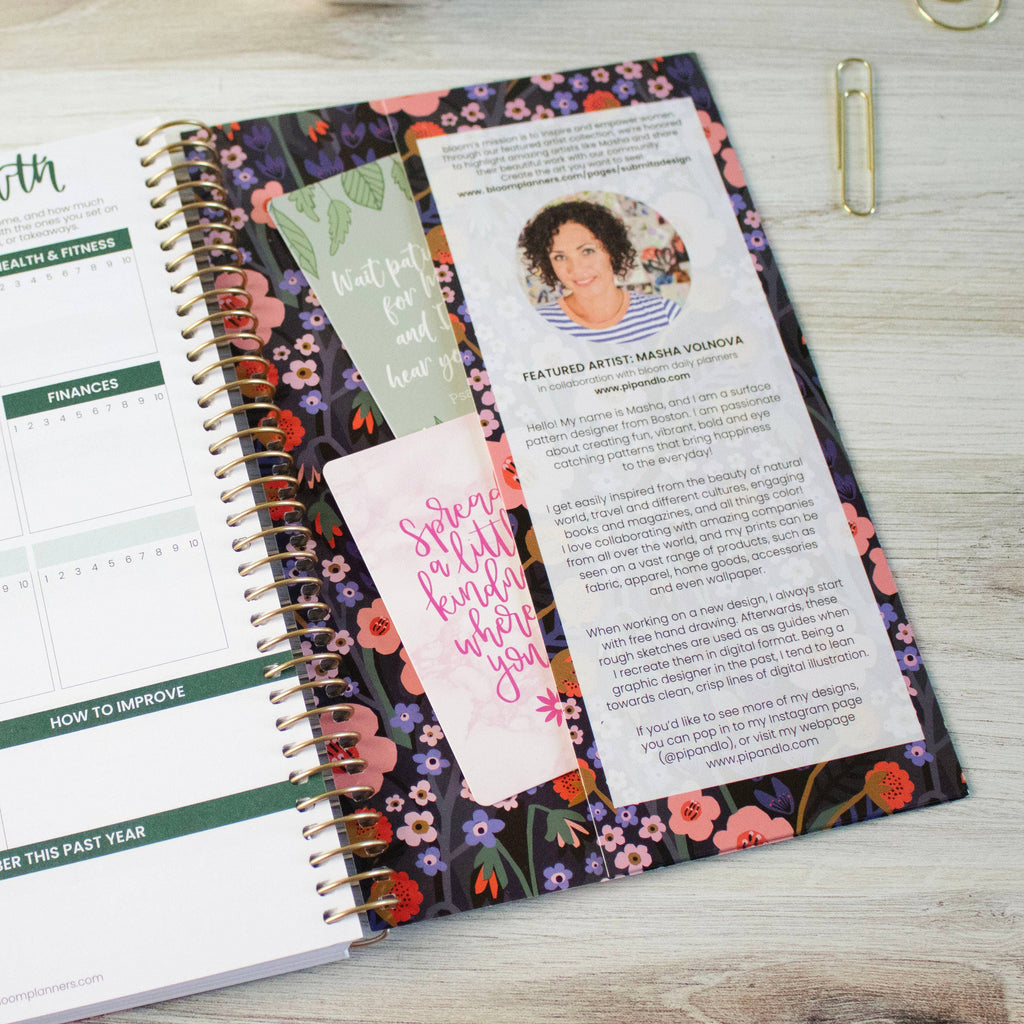 ome, and how much
with the ones you set on
, or takeaways.
HEALTH & FITNESS
2 3 4 5 6 7 8 9 10
FINANCES
1 2 3 4 5 6 7 8 9 10
9 10
1 2 3 4 5 6 7 8 9 10
HOW TO IMPROVE
BER THIS PAST YEAR
loomplanners.com
Wait pati
for
and I
hear yo
Psa
Spread
a litt
kindn
where
you
bloom's mission is to inspire and empower women.
Through our featured artist collection, we're honored
to highlight amazing artists like Masha and share
their beautiful work with our community
Create the art you want to see!
www.bloomplanners.com/pages/submitadesign
FEATURED ARTIST: MASHA VOLNOVA
in collaboration with bloom daily planners
www.pipandlo.com
Hello! My name is Masha, and I am a surface
pattern designer from Boston. I am passionate
about creating fun, vibrant, bold and eye
catching patterns that bring happiness
to the everyday!
I get easily inspired from the beauty of natural
world, travel and different cultures, engaging
books and magazines, and all things color!
I love collaborating with amazing companies
from all over the world, and my prints can be
seen on a vast range of products, such as
fabric, apparel, home goods, accessories
and even wallpaper.
When working on a new design, I always start
with free hand drawing. Afterwards, these
rough sketches are used as as guides when
I recreate them in digital format. Being a
graphic designer in the past, I tend to lean
towards clean, crisp lines of digital illustration.
If you'd like to see more of my designs,
you can pop in to my Instagram page
(@pipandlo), or visit my webpage
www.pipandlo.com